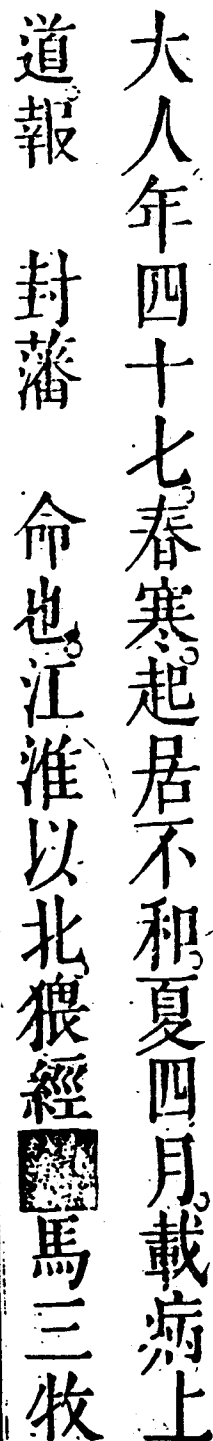 大人年四十七春寒起居不和夏四月載病上
道報　封藩　命也江淮以北猥經馬三牧